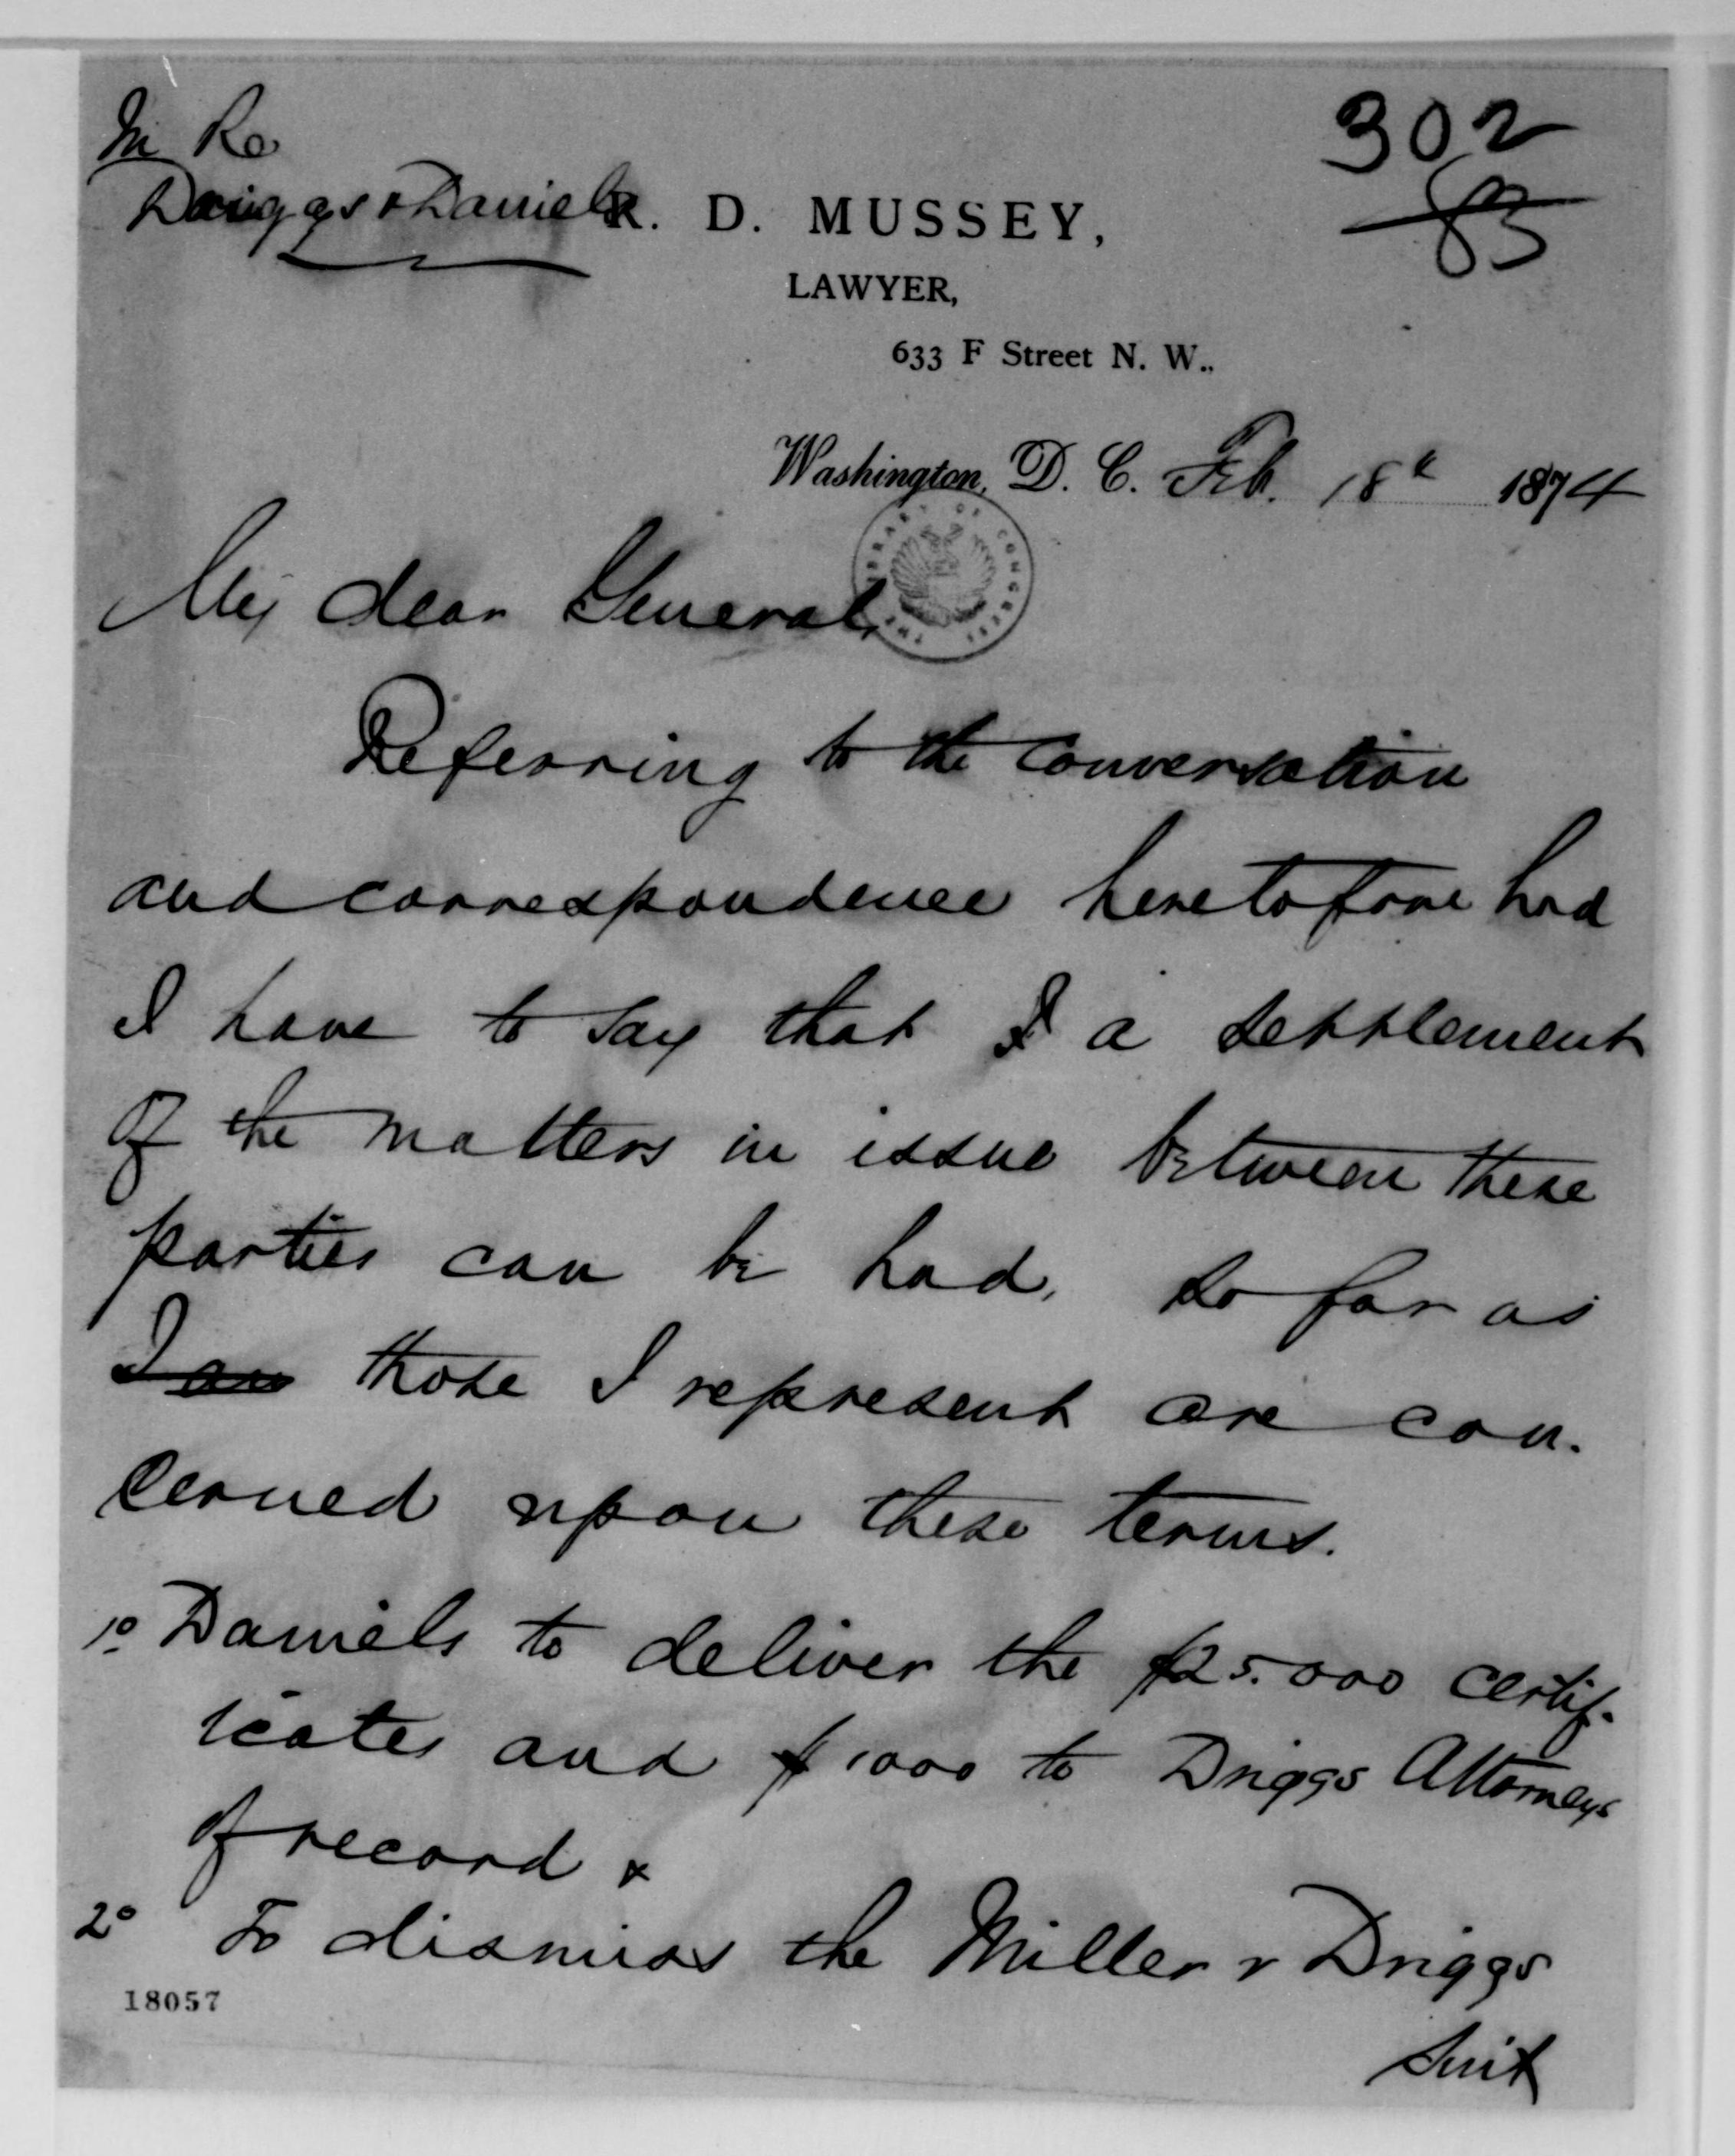 In Re
302
Driggs v Daniels
83
R. D. MUSSEY,
LAWYER,
633 F Street N. W..
Washington, D. C. Feb. 18th 1874
THE LIBRARY OF CONGRESS
My dear General,
Referring to the conversation
and correspondence heretofore had
I have to say that I a settlement
of the matters in issue between these
parties can be had, so far as
I am those I represent are con-
cerned upon these terms.
1o Daniels to deliver the $25.000 certif-
icates and $1000 to Driggs Attorneys
of record &
2o To dismiss the Miller v Driggs
Suit
18057